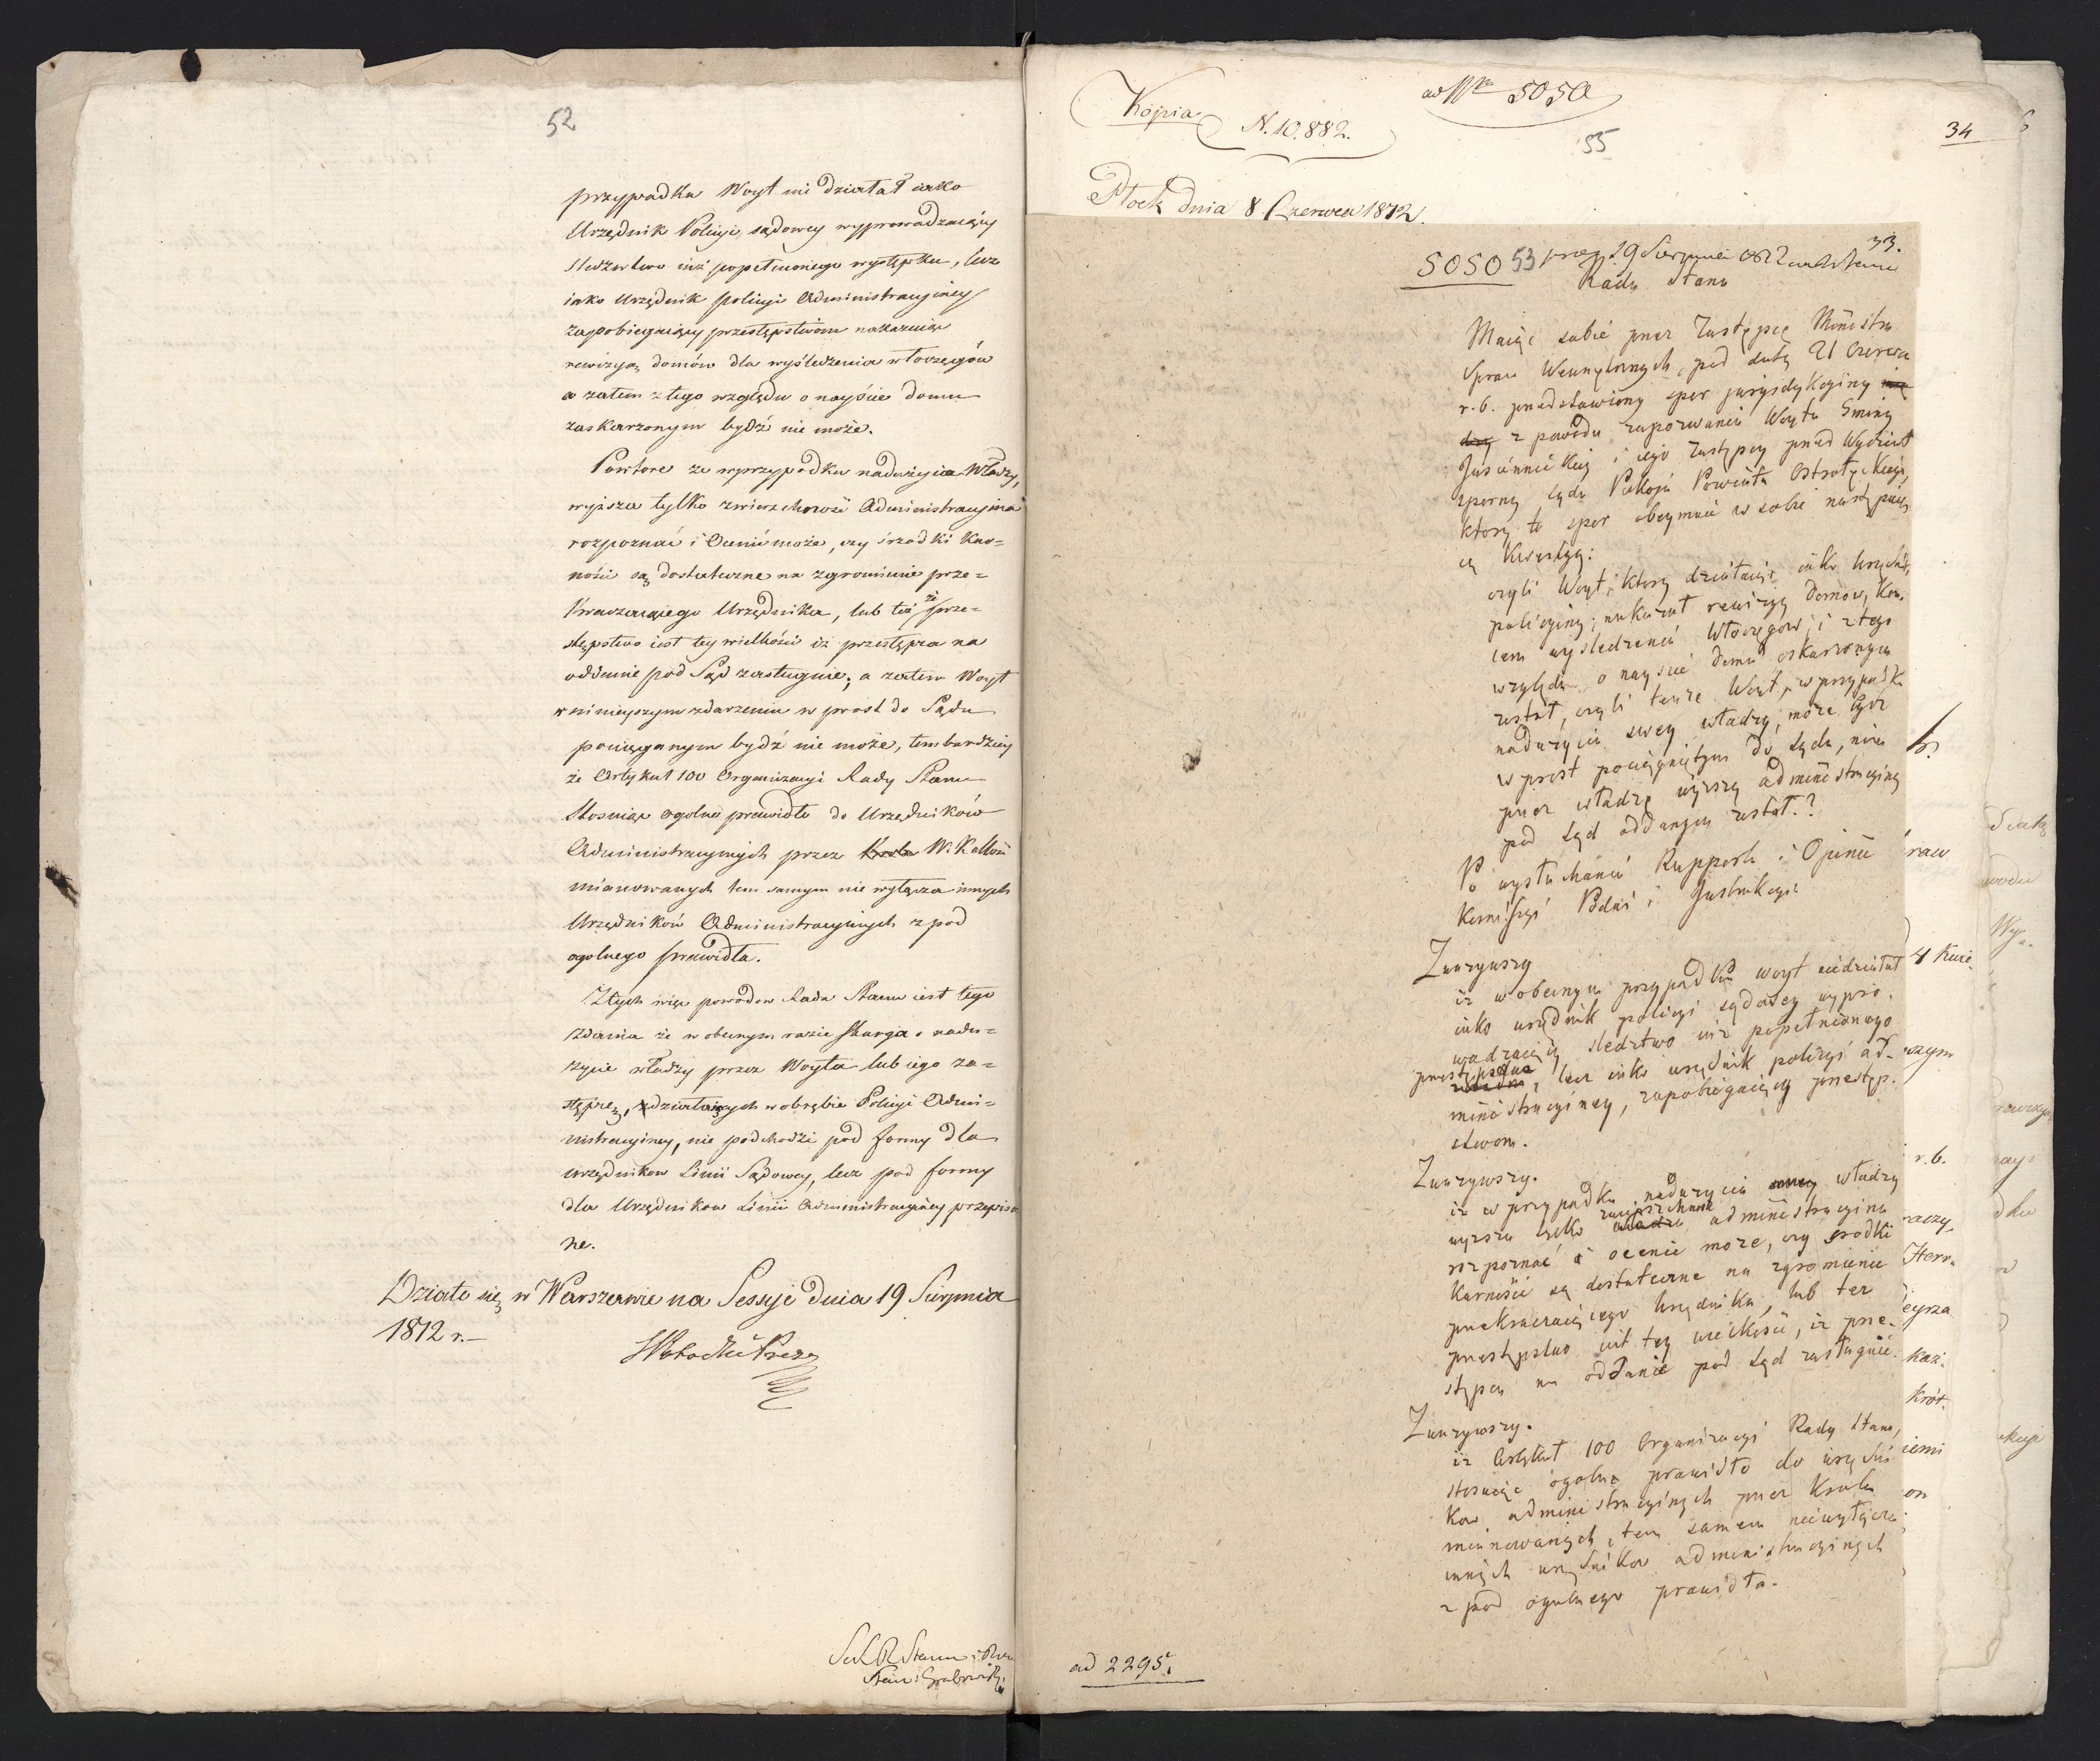 52
przypadku Woyt nie działał iako
Urzędnik Policyi, sądowey wyprowadzaiący
sledztwo iuż popełnionego występku, lecz
iako Urzędnik policyi Administracyiney
zapobiegaiący przestępstwom nakazuiąc
rewizyą domów dla wyśledzenia włoczęgów
a zatem z tego względu o nayście domu
zaskarzonym bydź nie może.
Powtore ze w przypadku nadużycia Władzy,
wyższa tylko zwierzchność Administracyina
rozpoznać i Ocenić może, czy śrzodki Kar=
ności są dostateczne na zgromienie prze=
kraczaiącego Urzędnika, lub też że prze=
stępstwo iest tey wielkości iż przestępca na
oddanie pod Sąd zasługuie; a zatem Woyt
w ninieyszym zdarzeniu w prost do Sądu
pociąganym bydź nie może, tembardziey
że Artykuł 100 Organizacyi Rady Stanu
Stosuiąc ogolne prawidło do Urzędników
Administracyinych przez Krola W. Kallom
mianowanych tem samym nie wyłącza innych
Urzędników Administracyinych z pod
ogolnego prawidła.
Z tych więc powodow Rada Stanu iest tego
zdania że w obecnym razie skarga o nadu=
życie władzy przez Woyta lub iego za=
stępcę, działaiących w obrębie Policyi Admi=
nistracyiney, nie podchodzi pod formy dla
urzędnikow Linii Sądowey, lecz pod formy
dla Urzędnikow Linii Administracyiney przepisa
ne.
Działo się w Warszawie na Sessyi dnia 19 Sierpnia
1812 r.
Sek R Stanu
Kopia
N. 10.882.
ad N 5050
55
34
Płock dnia 8 Czerwca 1812.
33.
5050 53 19 Sierpnia 1812
Rada Stanu
Maiąc sobie przez Zastępcę Ministra
Spraw Wewnętrznych, pod datą 21 Czerwca
r. b. przedstawiony spor jurysdykcyiny
z powodu zapozwania Woyta Gminy
i iego Zastępcy przed Wydział
sporny sądu Pokoju Powiatu Ostrołęckiego,
ktory to spor obeymuie w sobie następuią
cą kwestyą:
czyli Woyt, ktory działaiąc iako Urzędnik
policyiny, nakazał rewizyą domów, Koń.
cem wysledzenia Włoczęgow, i z tego
względu o nayscie domu oskarzonym
został, czyli tenże Woyt, w przypadku
nadużycia swey władzy, może bydz
w prost pociągniętym do sądu, nim
przez władzę wyższą administracyiną
pod sąd oddanym został.?
Po wysłuchaniu Rapportu i Opinii
Kommissyi Podań i Instrukcyi
Zważywszy
iż w obecnym przypadku woyt niedziałał
iako urzędnik policyi sądowey wypro.
wadzaiący sledztwo iuż popełnionego
przestępstwa, lecz iako urzędnik policyi ad-
ministracyiney, zapobiegaiący przestęp.
stwom.
Zważywszy.
iż w przypadku nadużycia władzy
wyższa tylko zwierzchność administracyina
rozpoznać i ocenić może, czy srodki
karności są dostateczne na zgromienie
przekraczaiącego Urzędnika, lub też
przestępstwo iest tey wielkości, iż prze-
stępca na oddanie pod sąd zasługuie.
Zważywszy.
iż Artykuł 100 Organizacyi Rady Stanu,
stosuiąc ogolne prawidło do urzędni
kow administracyinych przez Krola
mianowanych, tem samem niewyłącza
innych urzędnikow administracyinych
z pod ogulnego prawidła.
ad 2295.
raw
4 Kwie.
r. b.
raczy
Hero.
kaz.
Krót.
iemi
on